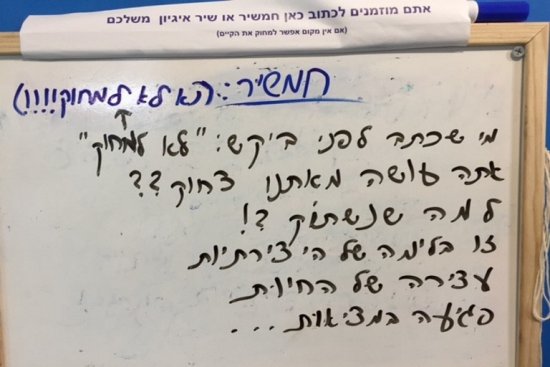 אתם מוזמנים לכתוב כאן חמשיר או שיר איגיון משלכם
(אם אין מקום אפשר למחוק את הקיים)
חמשיר: (נא לא למחוק!!!!)
מי שכתב לפני ביקש: "לא למחוק"
אתה עושה מאתנו צחוק??
למה שנשתוק?!
זו בלימה של היצירתיות
עצירה של החיות
פגיעה במציאות...